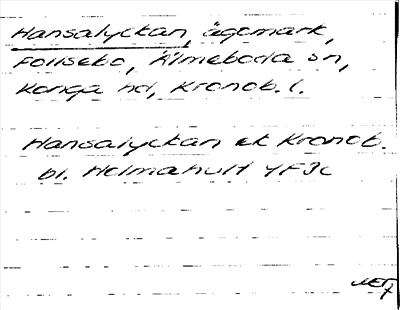 Hansalyckan, ägomark,
Follsebo, Älmeboda sn,
Konga hd, Kronob. l.
Hansalyckan ek Kronob.
bl. Holmahult 4F3c